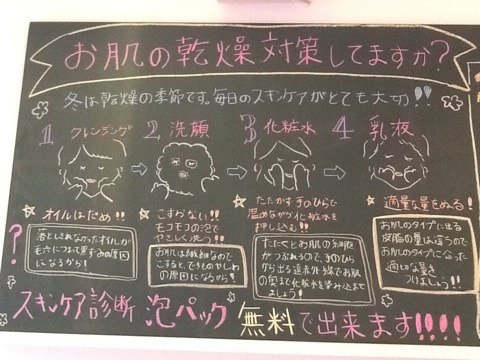 お肌の乾燥対策してますか?
冬は乾燥の季節です。毎日のスキンケアがとても大切!!
1 クレンジング 2 洗顔 3 化粧水 4 乳液
☆オイルはだめ!!
落としきれなかったオイルが
毛穴につまって黒ずみの原因
になるから!
☆こすらない!!
モコモコの泡で
やさしく洗う!!
お肌は繊細なので
こすると、できものやしわ
の原因になるから!
☆たたかず手のひらで
温めながら化粧水を
押し込む!!
たたくとお肌の細胞
がつぶれるので、手のひら
から出る遠赤外線でお肌
の奥まで化粧水を染み込ませ
ましょう!
☆適量な量をぬる!
お肌のタイプに出る
皮脂の量は違うので
お肌のタイプに合った
適切な量を
つけましょう!!
?
スキンケア診断 泡パック 無料で出来ます!!!!